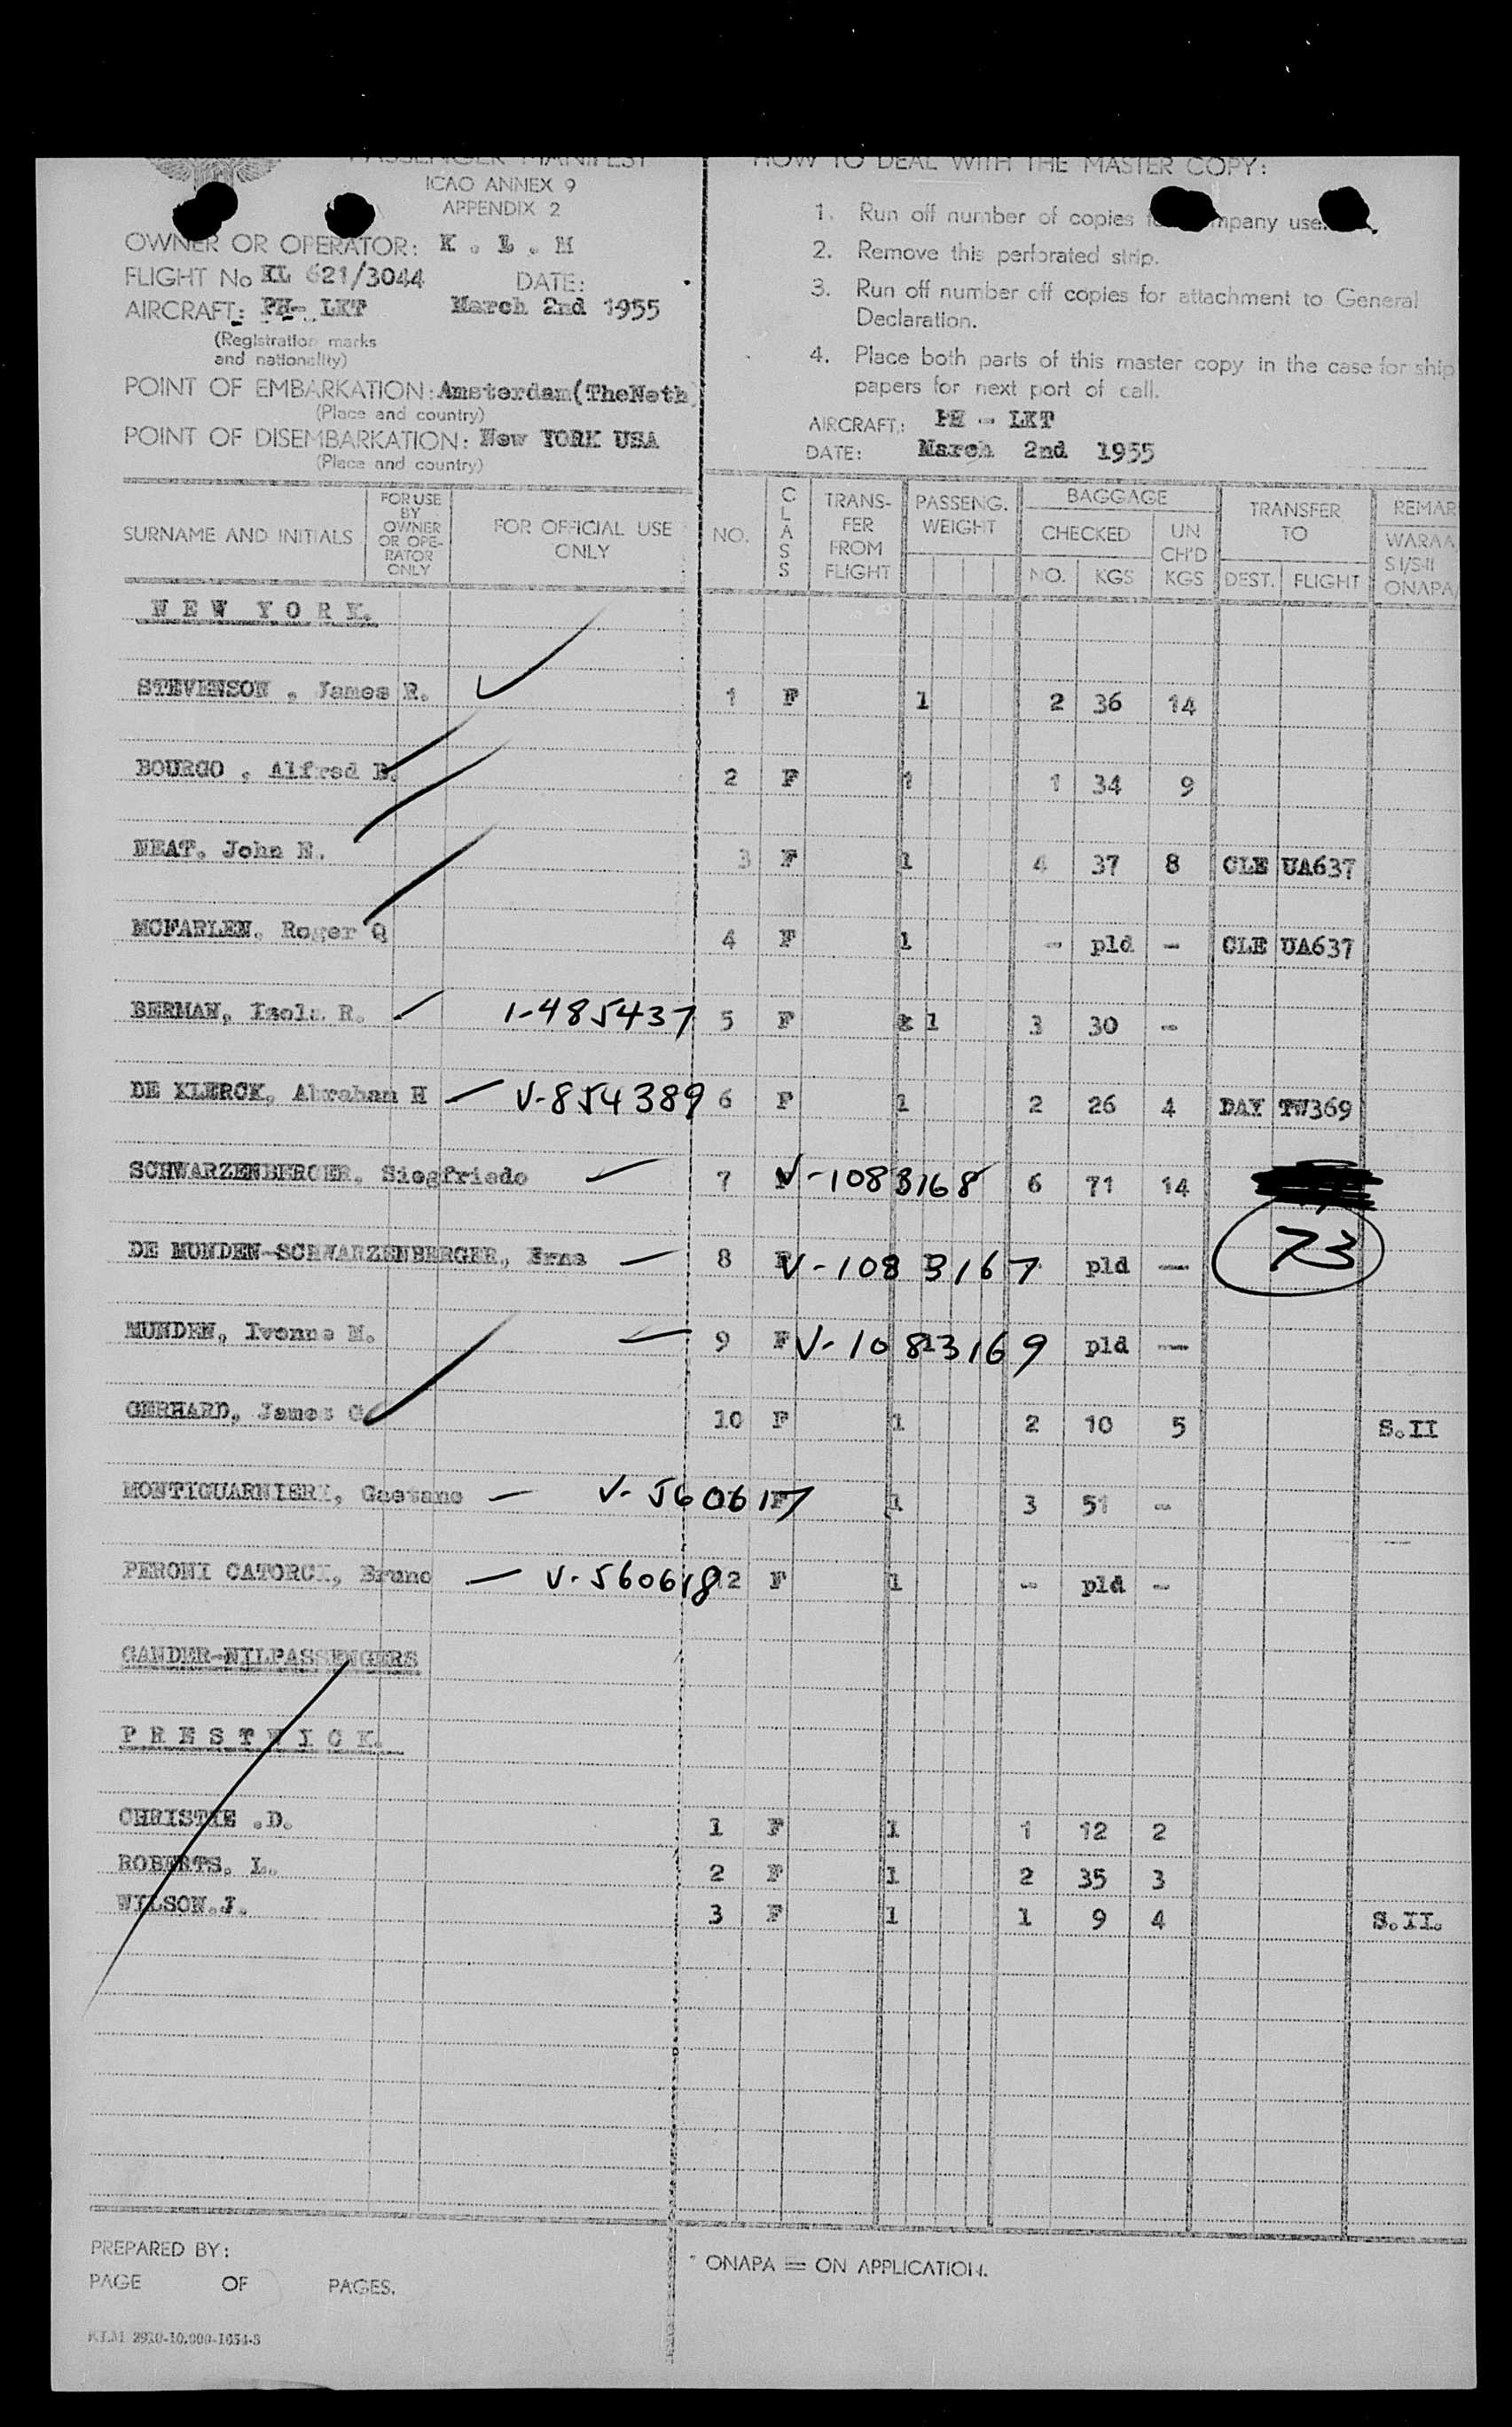 PASSENGER MANIFEST
ICAO ANNEX 9
APPENDIX 2
OWNER OR OPERATOR: K . L . M
FLIGHT No KL 621/3044 DATE:
AIRCRAFT: PH- LKT March 2nd 1955
(Registration marks
and nationality)
POINT OF EMBARKATION: Amsterdam(TheNeth)
(Place and country)
POINT OF DISEMBARKATION: New YORK USA
(Place and country)
HOW TO DEAL WITH THE MASTER COPY:
1. Run off number of copies company use.
2. Remove this perforated strip.
3. Run off number off copies for attachment to General
Declaration.
4. Place both parts of this master copy in the case for ship
papers for next port of call.
AIRCRAFT: PH - LKT
DATE: March 2nd 1955
SURNAME AND INITIALS FOR USE BY OWNER OR OPE-RATOR ONLY FOR OFFICIAL USE ONLY NO. CLASS TRANS-FER FROM FLIGHT PASSENG. WEIGHT BAGGAGE CHECKED NO. KGS UN CH'D KGS TRANSFER TO DEST. FLIGHT REMAR WARAA S I/S-II ONAPA/
N E W Y O R K.
STEVENSON , James R. 1 F 1 2 36 14
BOURGO , Alfred B. 2 F 1 1 34 9
NEAT, John N. 3 F 1 4 37 8 CLE UA637
MCFARLEN, Roger Q 4 F 1 - pld - CLE UA637
BERMAN, R. 1-485437 5 F 1 3 30 -
DE KLERCK, Abraham H V-854389 6 F 1 2 26 4 DAY TW369
SCHWARZENBERGER, Siegfriedo 7 V-1083168 6 71 14
DE MUNDEN-SCHWARZENBERGER, Erna 8 V-1083167 pld - 73
MUNDEN, Ivonne M. 9 F V-1083169 pld -
GERHARD, James G. 10 F 1 2 10 5 S.II
MONTIGUARNIERI, Gaetano V-560617 F 1 3 51 -
PERONI CATORCI, Bruno V-560618 12 F 1 - pld -
GANDER-NILPASSENGERS
P R E S T W I C K.
CHRISTIE .D. 1 F 1 1 12 2
ROBERTS, L. 2 F 1 2 35 3
WILSON.J. 3 F 1 1 9 4 S.II.
PREPARED BY:
PAGE OF PAGES.
* ONAPA = ON APPLICATION.
KLM 2910-10.000-1054-S